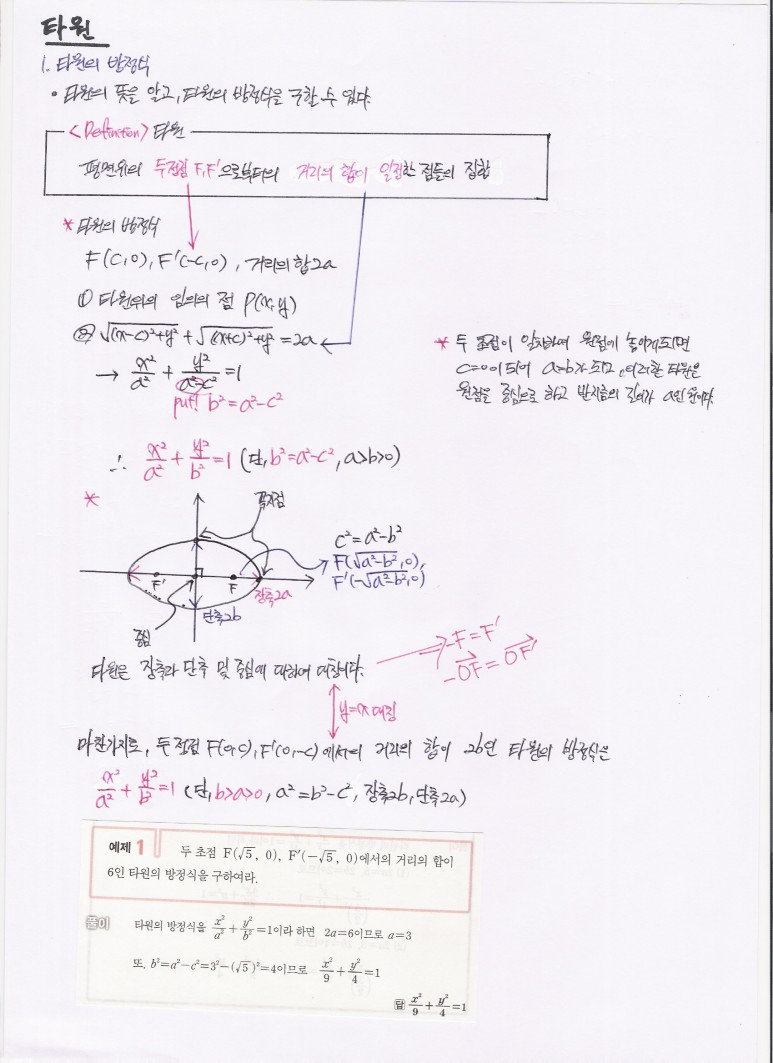 타원
1. 타원의 방정식
• 타원의 뜻을 알고, 타원의 방정식을 구할 수 있다.
<Definition> 타원
평면위의 두점 F, F'으로부터의 거리의 합이 일정한 점들의 집합
* 타원의 방정식
F(C,0), F'(-c,0), 거리의 합 2a
① 타원위의 임의의 점 P(x,y)
② √(x-c)²+y² + √(x+c)²+y² = 2a
→ x²/a² + y²/a²-c² = 1
put! b² = a²-c²
* 두 초점이 일치하여 원점에 놓이게 되면
C=0이 되어 a=b가 되고, 이러한 타원은
원점을 중심으로 하고 반지름의 길이가 a인 원이다.
∴ x²/a² + y²/b² = 1 (단, b²=a²-c², a>b>0)
*
꼭지점
c² = a²-b²
F(√a²-b²,0),
F'(-√a²-b²,0)
F' F 장축2a
단축2b
중심
타원은 장축과 단축 및 중심에 대하여 대칭이다.
-F=F'
-OF = OF'
y=x 대칭
마찬가지로, 두 점 F(0,c), F'(0,-c)에서의 거리의 합이 2b인 타원의 방정식은
x²/a² + y²/b² = 1 (단, b>a>0, a²=b²-c², 장축2b, 단축2a)
예제 1 두 초점 F(√5, 0), F'(-√5, 0)에서의 거리의 합이
6인 타원의 방정식을 구하여라.
풀이 타원의 방정식을 x²/a² + y²/b² = 1이라 하면 2a=6이므로 a=3
또, b²=a²-c²=3²-(√5)²=4이므로 x²/9 + y²/4 = 1
답 x²/9 + y²/4 = 1